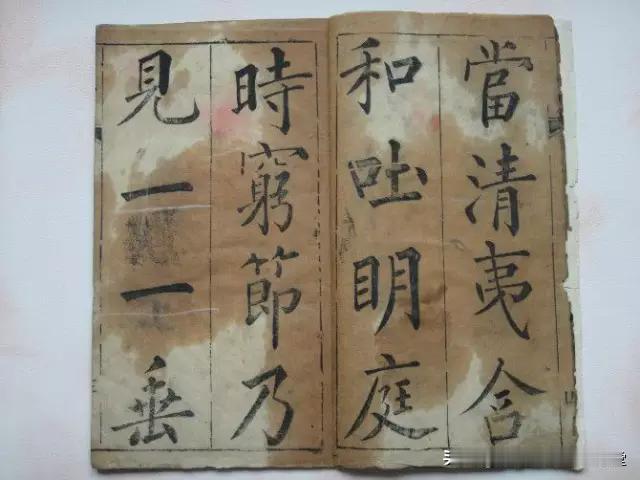 當清夷含
和吐明庭
時窮節乃
見一一垂